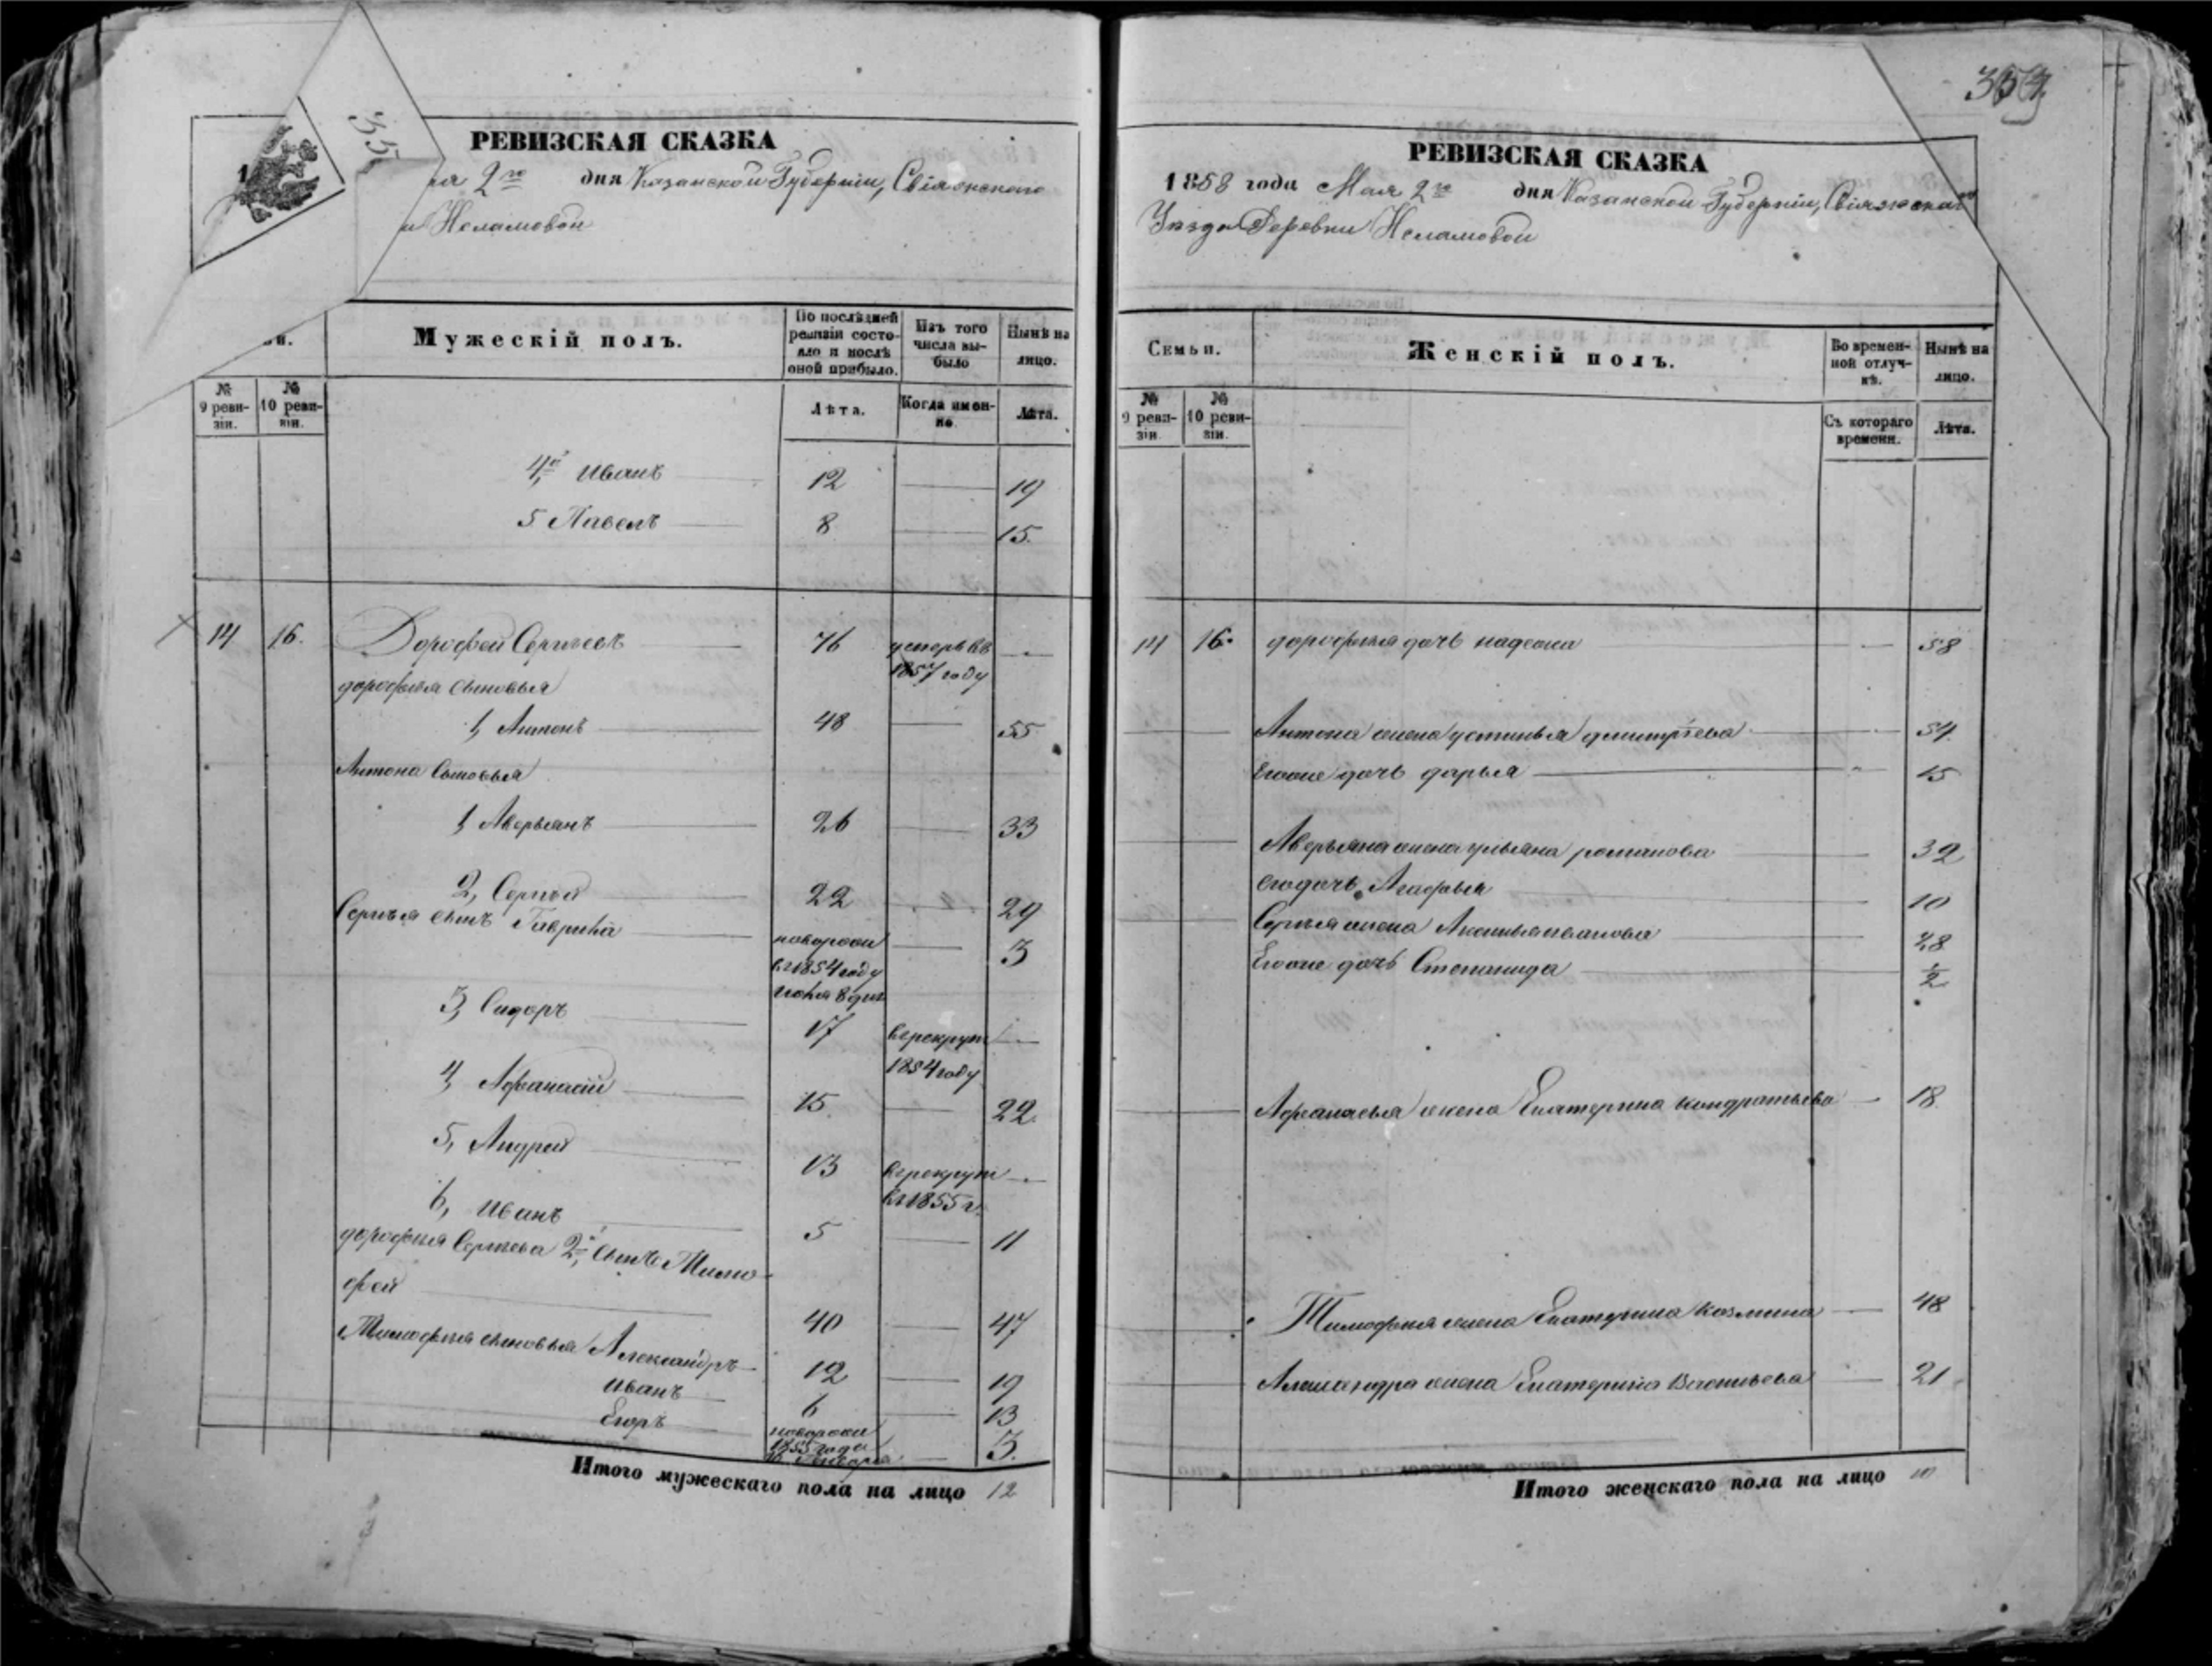 35
РЕВИЗСКАЯ СКАЗКА
1
ая 2го дня Казанской Губернии, Свіяжскаго
и Исламовой
Мужескій полъ.
По послѣдней ревизіи состояло и послѣ оной прибыло.
Изъ того числа выбыло
Нынѣ на лицо.
№ 9 ревизіи.
№ 10 ревизіи.
Лѣта.
Когда именно.
Лѣта.
4й Иванъ 12 19
5 Павелъ 8 15.
14 16. Дорофей Сергѣевъ 76 умеръ въ
1857 году
дорофея сыновья
1, Антонъ 48 55
Антона Сыновья
1, Аверьянъ 26 33
2, Сергѣй 22 29
Сергѣя сынъ Гаврила 3
въ 1854 году
июня 8 дня
3, Сидоръ 17 врекрут
1854 году
4, Афанасій 15. 22.
5, Андрей 13 врекрут
въ 1855 г.
6, Иванъ 5 11
дорофея Сергѣева 2й сынъ Тимо-
фей 40 47
Тимофея сыновья Александръ 12 19
Иванъ 6 13
Егоръ
1855 года
3.
Итого мужескаго пола на лицо 12
РЕВИЗСКАЯ СКАЗКА
1858 года Мая 2го дня Казанской Губернии, Свіяжскаго
Уѣзда Деревни Исламовой
Семьи.
Женскій полъ.
Во временной отлучкѣ.
Нынѣ на лицо.
№ 9 ревизіи.
№ 10 ревизіи.
Съ котораго времени.
Лѣта.
14 16. дорофея дочь 58
Антона жена устинья дмитріева 54
Егоже дочь дарья 15
Аверьяна жена ульяна романова 32
Егодочь Агафья 10
Сергѣя жена 28
Егоже дочь Степанида 1/2
Афанасья жена Екатерина кондратьева 18
Тимофея жена Екатерина Козмина 48
Александра жена Екатерина Васильева 21
Итого женскаго пола на лицо 10